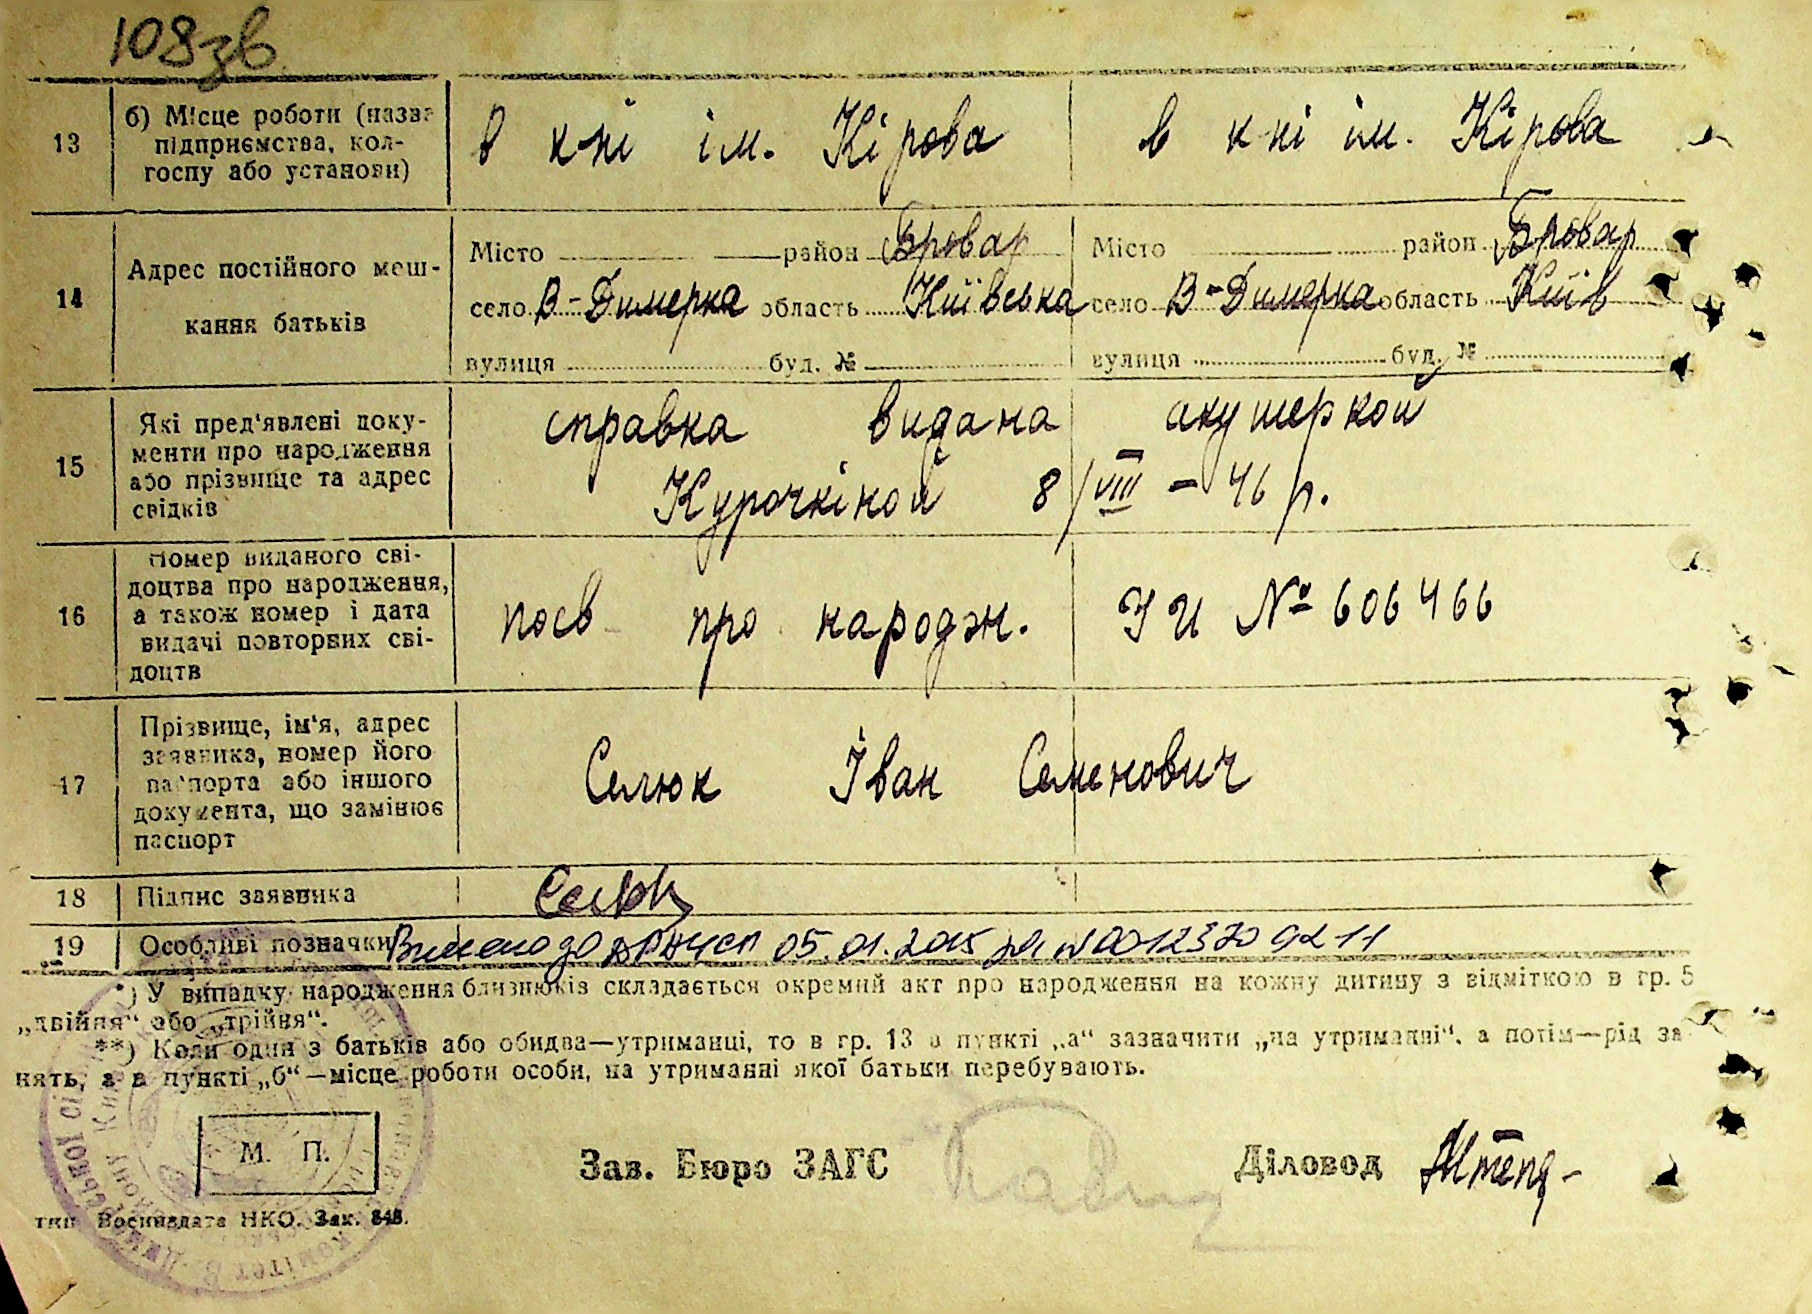 108зв
13 б) Місце роботи (назва в к-ні ім. Кірова в к-ні ім. Кірова
підприємства, кол-
госпу або установи)
14 Адрес постійного меш-
кання батьків
Місто район Бровар Місто район Бровар
село В-Димерка область Київська село В-Димерка область Київ
вулиця буд. № вулиця буд. №
15 Які пред'явлені доку-
менти про народження
або прізвище та адрес
свідків
справка видана акушеркой
Курочкіной 8/VIII – 46 р.
16 Номер виданого сві-
доцтва про народження,
а також номер і дата
видачі повторних сві-
доцтв
посв про народж. УИ № 606466
17 Прізвище, ім'я, адрес
заявника, номер його
паспорта або іншого
документа, що замінює
паспорт
Селюк Іван Семенович
18 Підпис заявника Селюк
19 Особливі позначки 05.01.2015
*) У випадку народження близнюків складається окремий акт про народження на кожну дитину з відміткою в гр. 5
„двійня“ або „трійня“.
**) Коли один з батьків або обидва—утриманці, то в гр. 13 в пункті „а“ зазначити „на утриманні“, а потім—рід за-
нять, а в пункті „б“—місце роботи особи, на утриманні якої батьки перебувають.
М. П.
Зав. Бюро ЗАГС Діловод
тип. Воениздата НКО. Зак. 848.